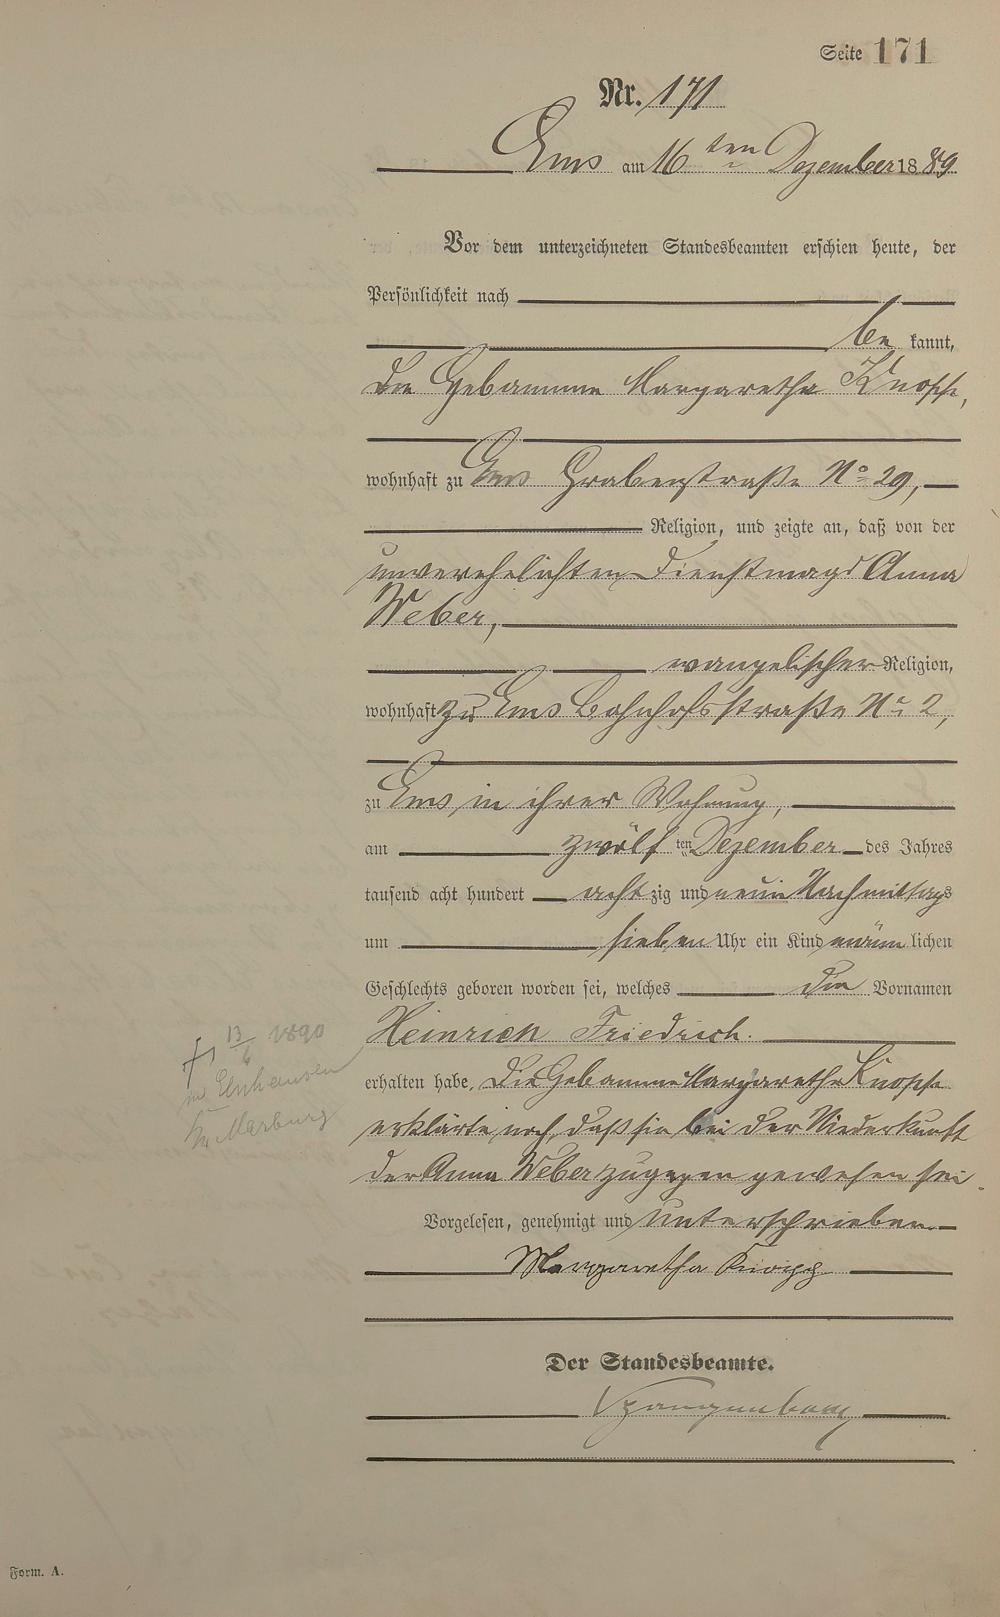 Seite 171
Nr. 171
Ems am 16ten Dezember 1889
Vor dem unterzeichneten Standesbeamten erschien heute, der
Persönlichkeit nach
be kannt,
die Hebamme Margaretha Knopp,
wohnhaft zu Ems Grabenstraße No 29,
Religion, und zeigte an, daß von der
unverehelichten Dienstmagd Anna
Weber,
evangelischer Religion,
wohnhaft zu Ems Bahnhofsstraße No 2,
zu Ems in ihrer Wohnung,
am zwölf ten Dezember des Jahres
tausend acht hundert acht zig und neun Nachmittags
um sieben Uhr ein Kind männ lichen
Geschlechts geboren worden sei, welches die Vornamen
Heinrich Friedrich.
erhalten habe. Die Hebamme Margaretha Knopp
erklärte noch, daß sie bei der Niederkunft
der Anna Weber zugegen gewesen sei.
Vorgelesen, genehmigt und unterschrieben
Margaretha Knopp
Der Standesbeamte.
Spangenberg
† 13/6 1890
in
Marburg
Form. A.